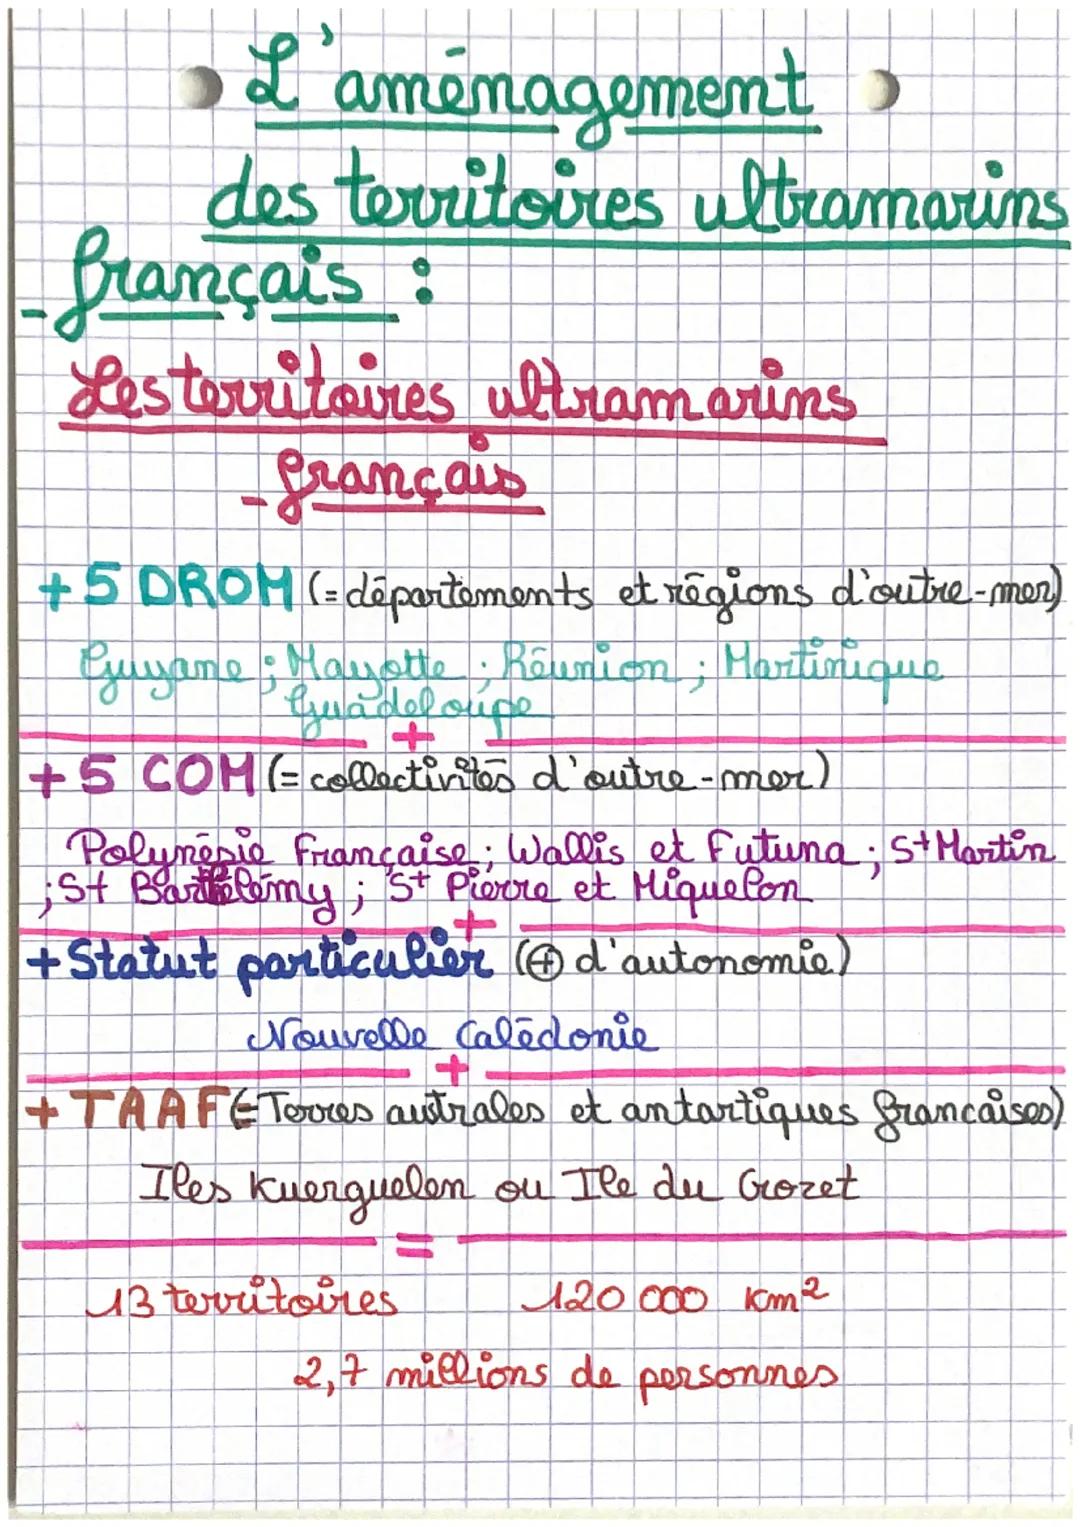 L'aménagement
des territoires ultramarins
français :
Les territoires ultramarins
français
+ 5 DROM (= départements et régions d'outre-mer)
Guyane ; Mayotte ; Réunion ; Martinique
Guadeloupe
+
+ 5 COM (= collectivités d'outre-mer)
Polynésie Française ; Wallis et Futuna ; St Martin
; St Barthélémy ; St Pierre et Miquelon
+
+ Statut particulier (⊕ d'autonomie)
Nouvelle Calédonie
+
+ TAAF (= Terres australes et antartiques françaises)
Iles Kuerguelen ou Ile du Crozet
=
13 territoires 120 000 km²
2,7 millions de personnes